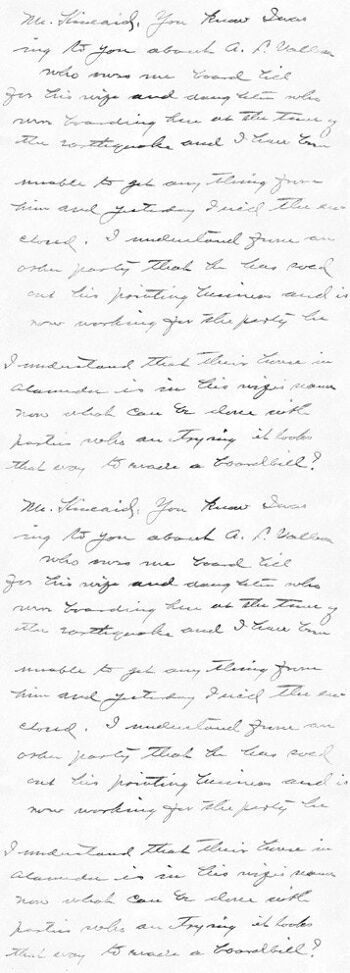 Mr. Kincaid, You know I was
ing to you about A. L. Vallen
who owes me board bill
for his wife and daughter who
were boarding here at the time of
the earthquake and I have been
unable to get any thing from
him and yesterday I the
closed. I understand from an
other party that he has sold
out his printing business and is
now working for the party he
I understand that their house in
Alameda is in his wife's name
now what can be done with
parties who are trying it looks
that way to evade a boardbill?
Mr. Kincaid, You know I was
ing to you about A. L. Vallen
who owes me board bill
for his wife and daughter who
were boarding here at the time of
the earthquake and I have been
unable to get any thing from
him and yesterday I the
closed. I understand from an
other party that he has sold
out his printing business and is
now working for the party he
I understand that their house in
Alameda is in his wife's name
now what can be done with
parties who are trying it looks
that way to evade a boardbill?